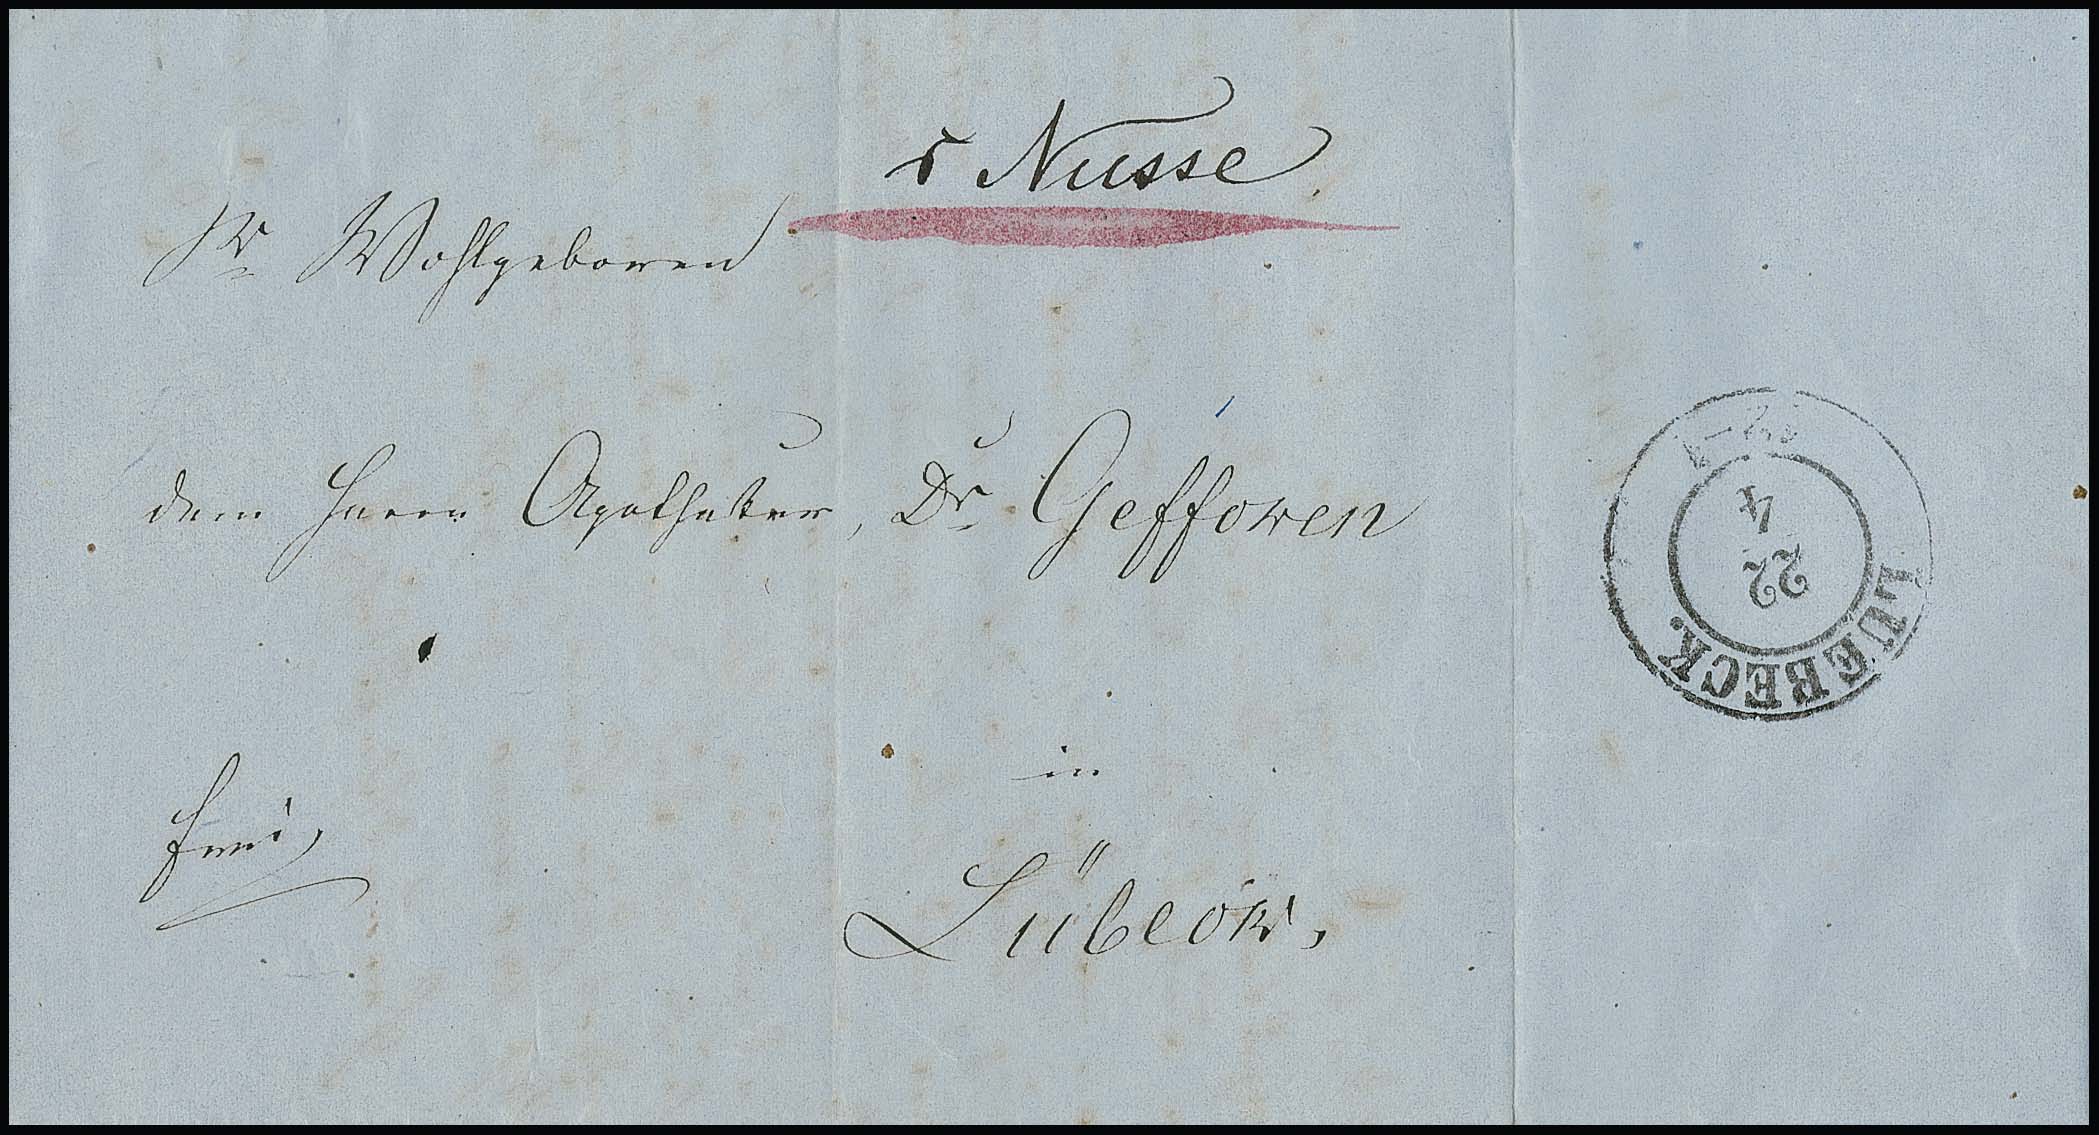 v Nusse
Sr Wohlgeboren
dem Herrn Apotheker, Dr Geffcken
in
frei,
Lübeck,
LUEBECK.
22
4